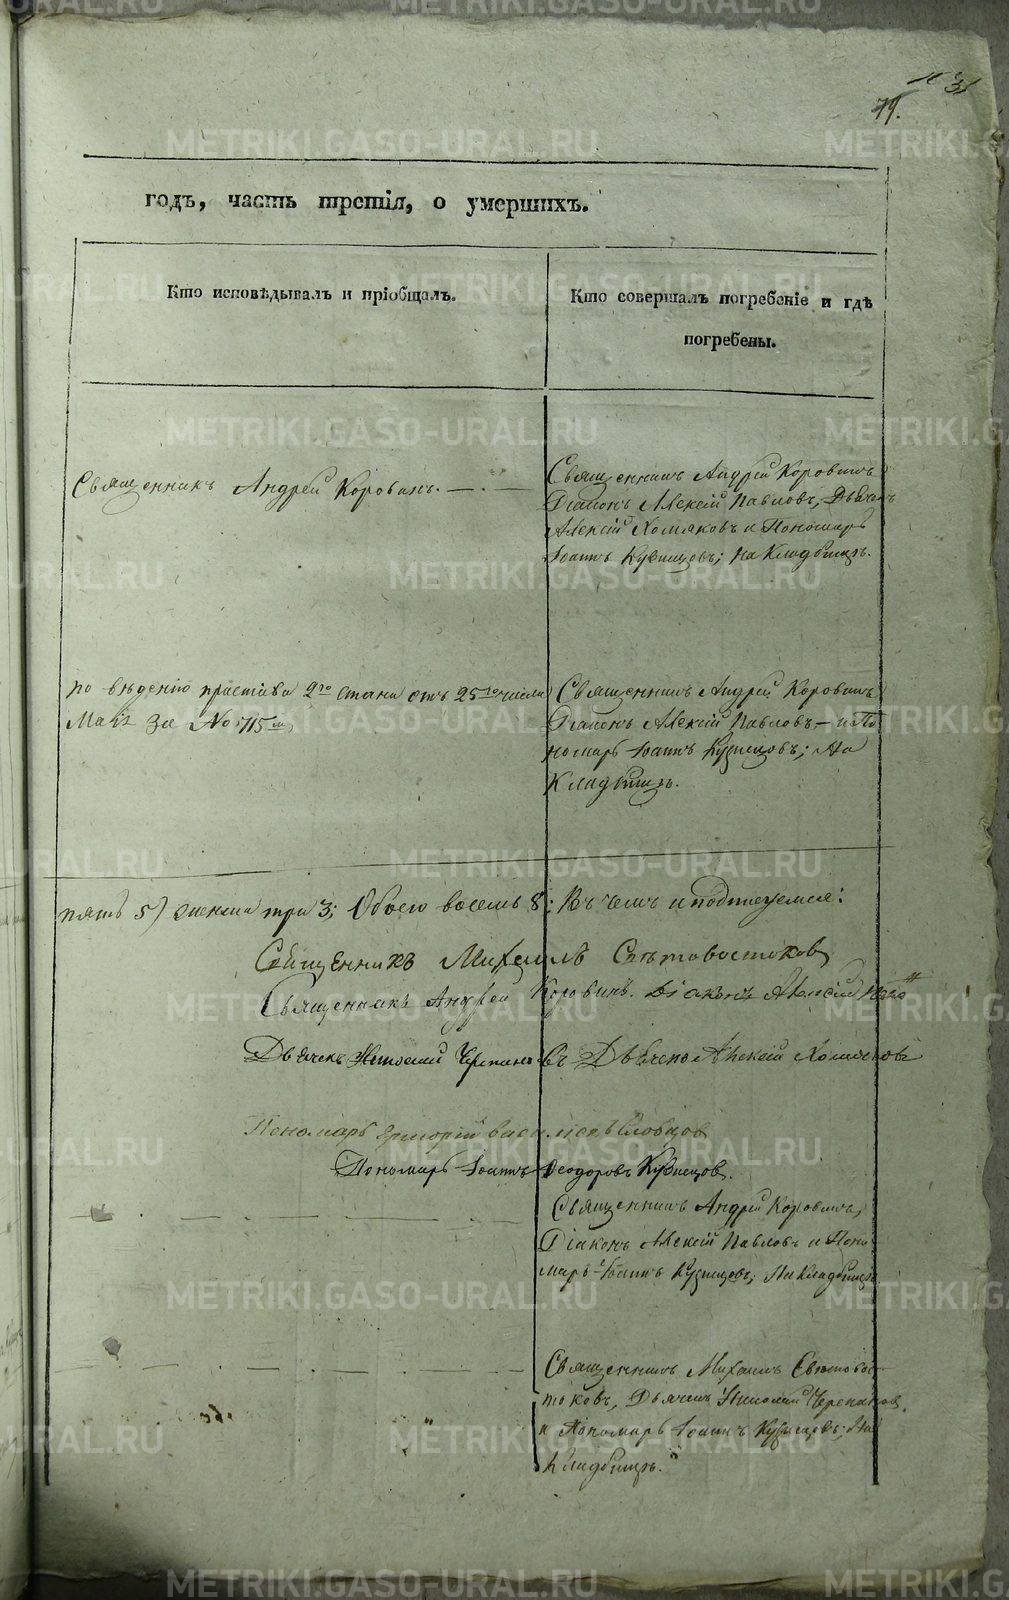 79.
годъ, часть третія, о умершихъ.
Кто исповѣдывалъ и пріобщалъ.
Кто совершалъ погребеніе и гдѣ
погребены.
Священникъ Андрей Коровинъ. — . —
Священникъ Андрей Коровинъ
Діаконъ Алексій Павловъ, Дьячекъ
Алексій Хомяковъ и Пономарь
Іоаннъ Кузнецовъ; на Кладбищѣ.
по вѣденію пристава 2го стана отъ 25го числа
Мая за No 715м,
Священникъ Андрей Коровинъ
Діаконъ Алексій Павловъ – и По
номарь Іоаннъ Кузнецовъ; На
Кладбищѣ.
пять 5) женска три 3; Обоего восемь 8; Въ чемъ и подпис уемся:
Священникъ Михаилъ Свѣтовостоков
Священникъ Андрей Коровинъ. Діаконъ Алексій
Дьячекъ Николай Черпановъ Дьячекъ Алексій Хомяковъ
Пономарь Словцов
Пономарь Іоаннъ Ѳеодоровъ Кузнецов.
Священникъ Андрей Коровинъ,
Діаконъ Алексій Павловъ и Поно
марь Іоаннъ Кузнецовъ; На Кладбищѣ
Священникъ Михаилъ Свѣтовос-
токовъ, Дьячекъ Николай Черепанов,
и Пономарь Іоаннъ Кузнецовъ; На
Кладбищѣ.
METRIKI.GASO-URAL.RU